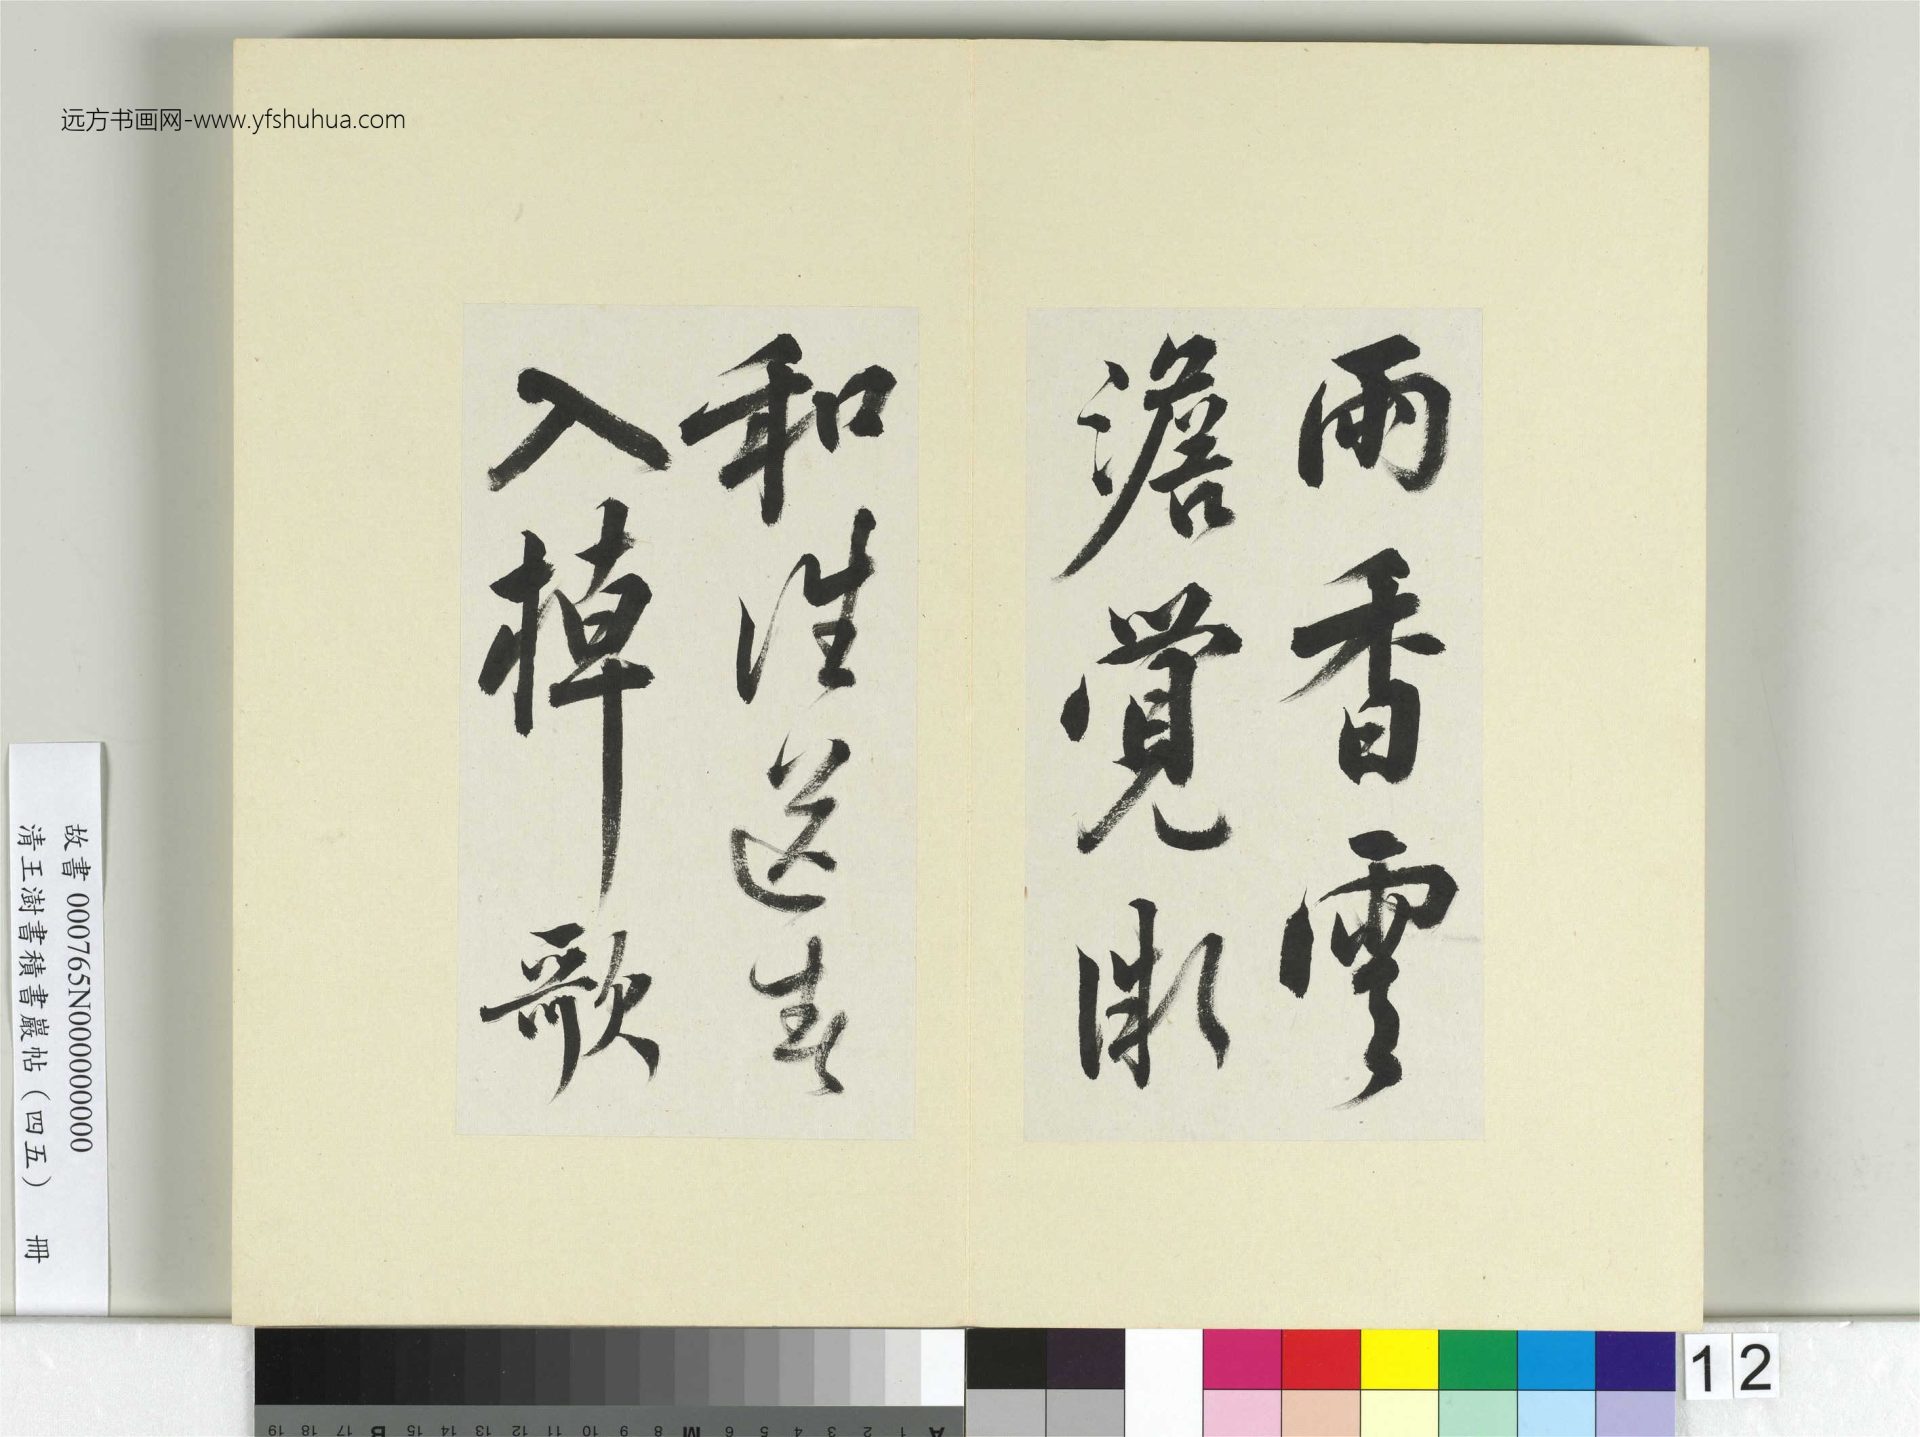 远方书画网-www.yfshuhua.com
雨香雲
澹覺微
和誰送春
入棹歌
故書 000765N000000000
清王澍書積書巖帖(四五) 冊
12
A 1 2 3 4 5 6 M 8 9 10 11 12 13 14 15 B 17 18 19